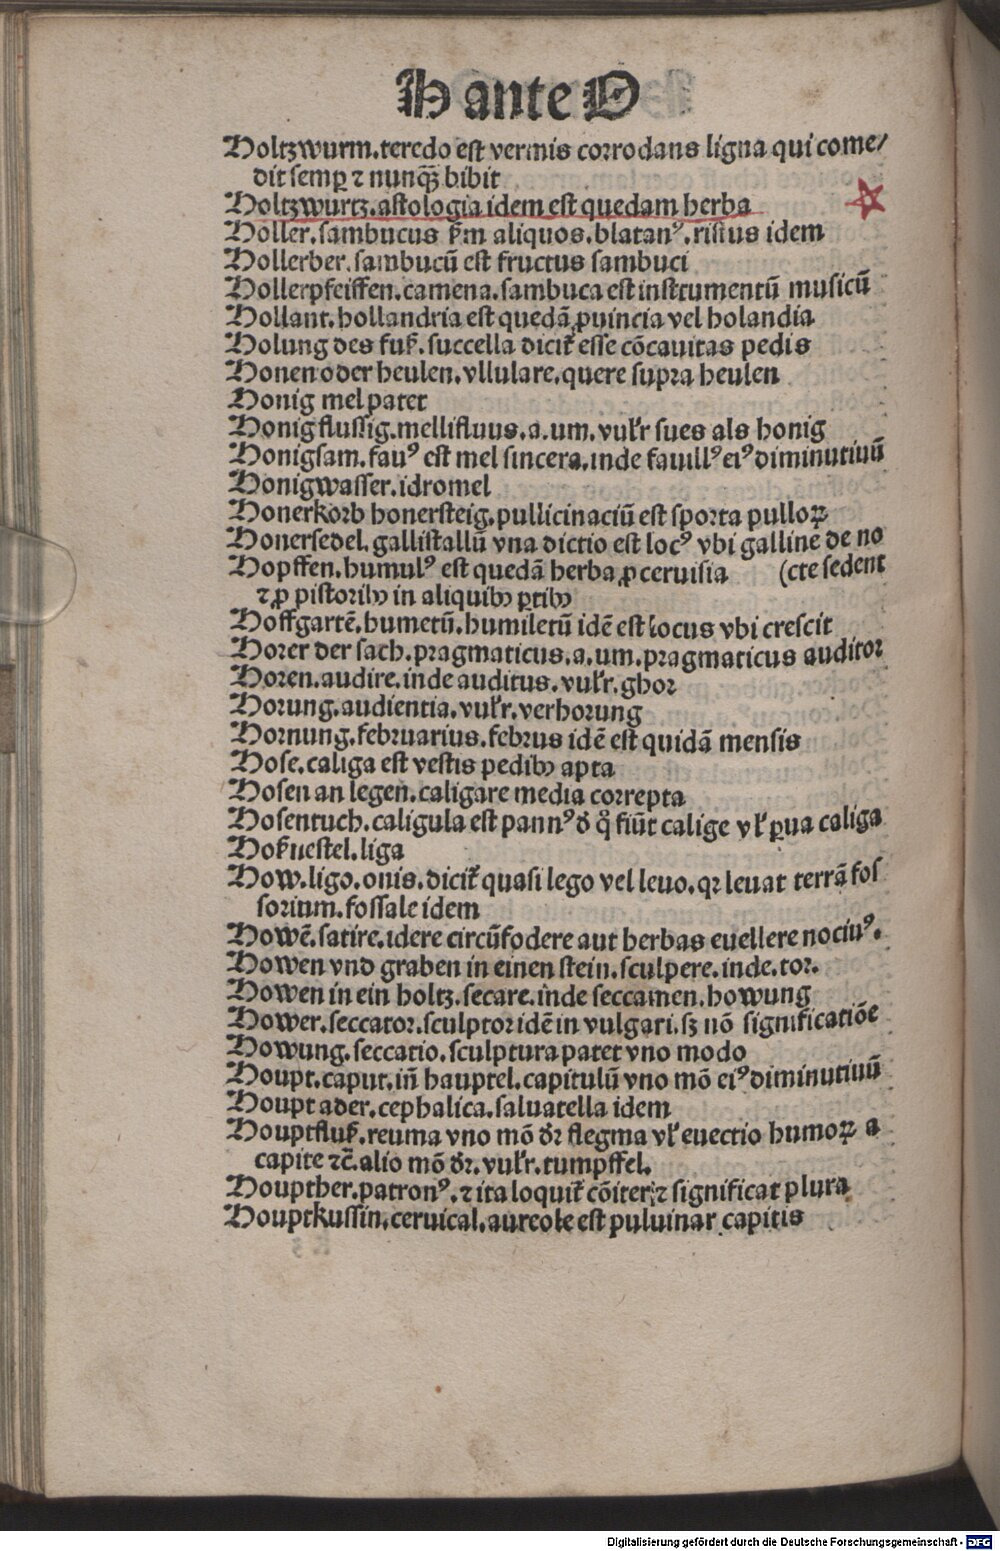 H ante O
Holtzwurm.teredo est vermis corrodans ligna qui come/
dit semꝑ ⁊ nunqꝫ bibit
Holtzwurtz.astologia idem est quedam herba
Holler.sambucus ẜm aliquos.blatanꝰ.riscus idem
Hollerber.sambucū est fructus sambuci
Hollerpfeiffen.camena.sambuca est instrumentū musicū
Hollant.hollandria est quedā ꝓuincia vel holandia
Holung des fuß.succella dicit̃ esse cōcauitas pedis
Honen oder heulen.vllulare.quere supra heulen
Honig mel patet
Honigflussig.mellifluus.a.um.vulr̃ sues als honig
Honigsam.fauꝰ est mel sincera.inde fauillꝰ eiꝰ diminutiuū
Honigwasser.idromel
Honerkorb honersteig.pullicinaciū est sporta pulloꝝ
Honersedel.gallistallū vna dictio est locꝰ vbi galline de no
Hopffen.humulꝰ est quedā herba ꝓ ceruisia (cte sedent
⁊ ꝓ pistoribꝰ in aliquibꝰ ꝑtibꝰ
Hoffgartē.humetū.humiletū idē est locus vbi crescit
Horer der sach.pragmaticus.a.um.pragmaticus auditor
Horen.audire.inde auditus.vulr̃.ghor
Horung.audientia.vulr̃.verhorung
Hornung.februarius.februs idē est quidā mensis
Hose.caliga est vestis pedibꝰ apta
Hosen an legen.caligare media correpta
Hosentuch.caligula est pannꝰ ð q̊ fiūt calige vl̓ ꝑua caliga
Hoßnestel.liga
How.ligo.onis.dicit̃ quasi lego vel leuo.qꝛ leuat terrā fos
sorium.fossale idem
Howē.satire.idere circūfodere aut herbas euellere nociuꝰ.
Howen vnd graben in einen stein.sculpere.inde.tor.
Howen in ein holtz.secare.inde seccamen.howung
Hower.seccator.sculptor idē in vulgari.sꝫ nō significatiōe
Howung.seccatio.sculptura patet vno modo
Houpt.caput.iñ hauptel.capitulū vno mō eiꝰ diminutiuū
Houpt ader.cephalica.saluatella idem
Houptfluß.reuma vno mō ðꝛ flegma vl̓ euectio humoꝝ a
capite ⁊c̄.alio mō ðꝛ.vulr̃.tumpffel.
Houpther.patronꝰ.⁊ ita loquit̃ cōiter.⁊ significat plura
Houptkussin.ceruical.aureole est puluinar capitis
Digitalisierung gefördert durch die Deutsche Forschungsgemeinschaft - DFG